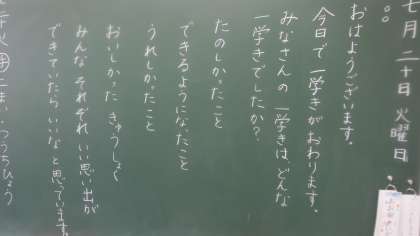 七月二十日火曜日
おはようございます。
今日で一学きがおわります。
みなさんの一学きは、どんな
一学きでしたか？
たのしかったこと
できるようになったこと
うれしかったこと
おいしかったきゅうしょく
みんなそれぞれいい思い出が
できていたらいいなと思っています。
つうちひょう